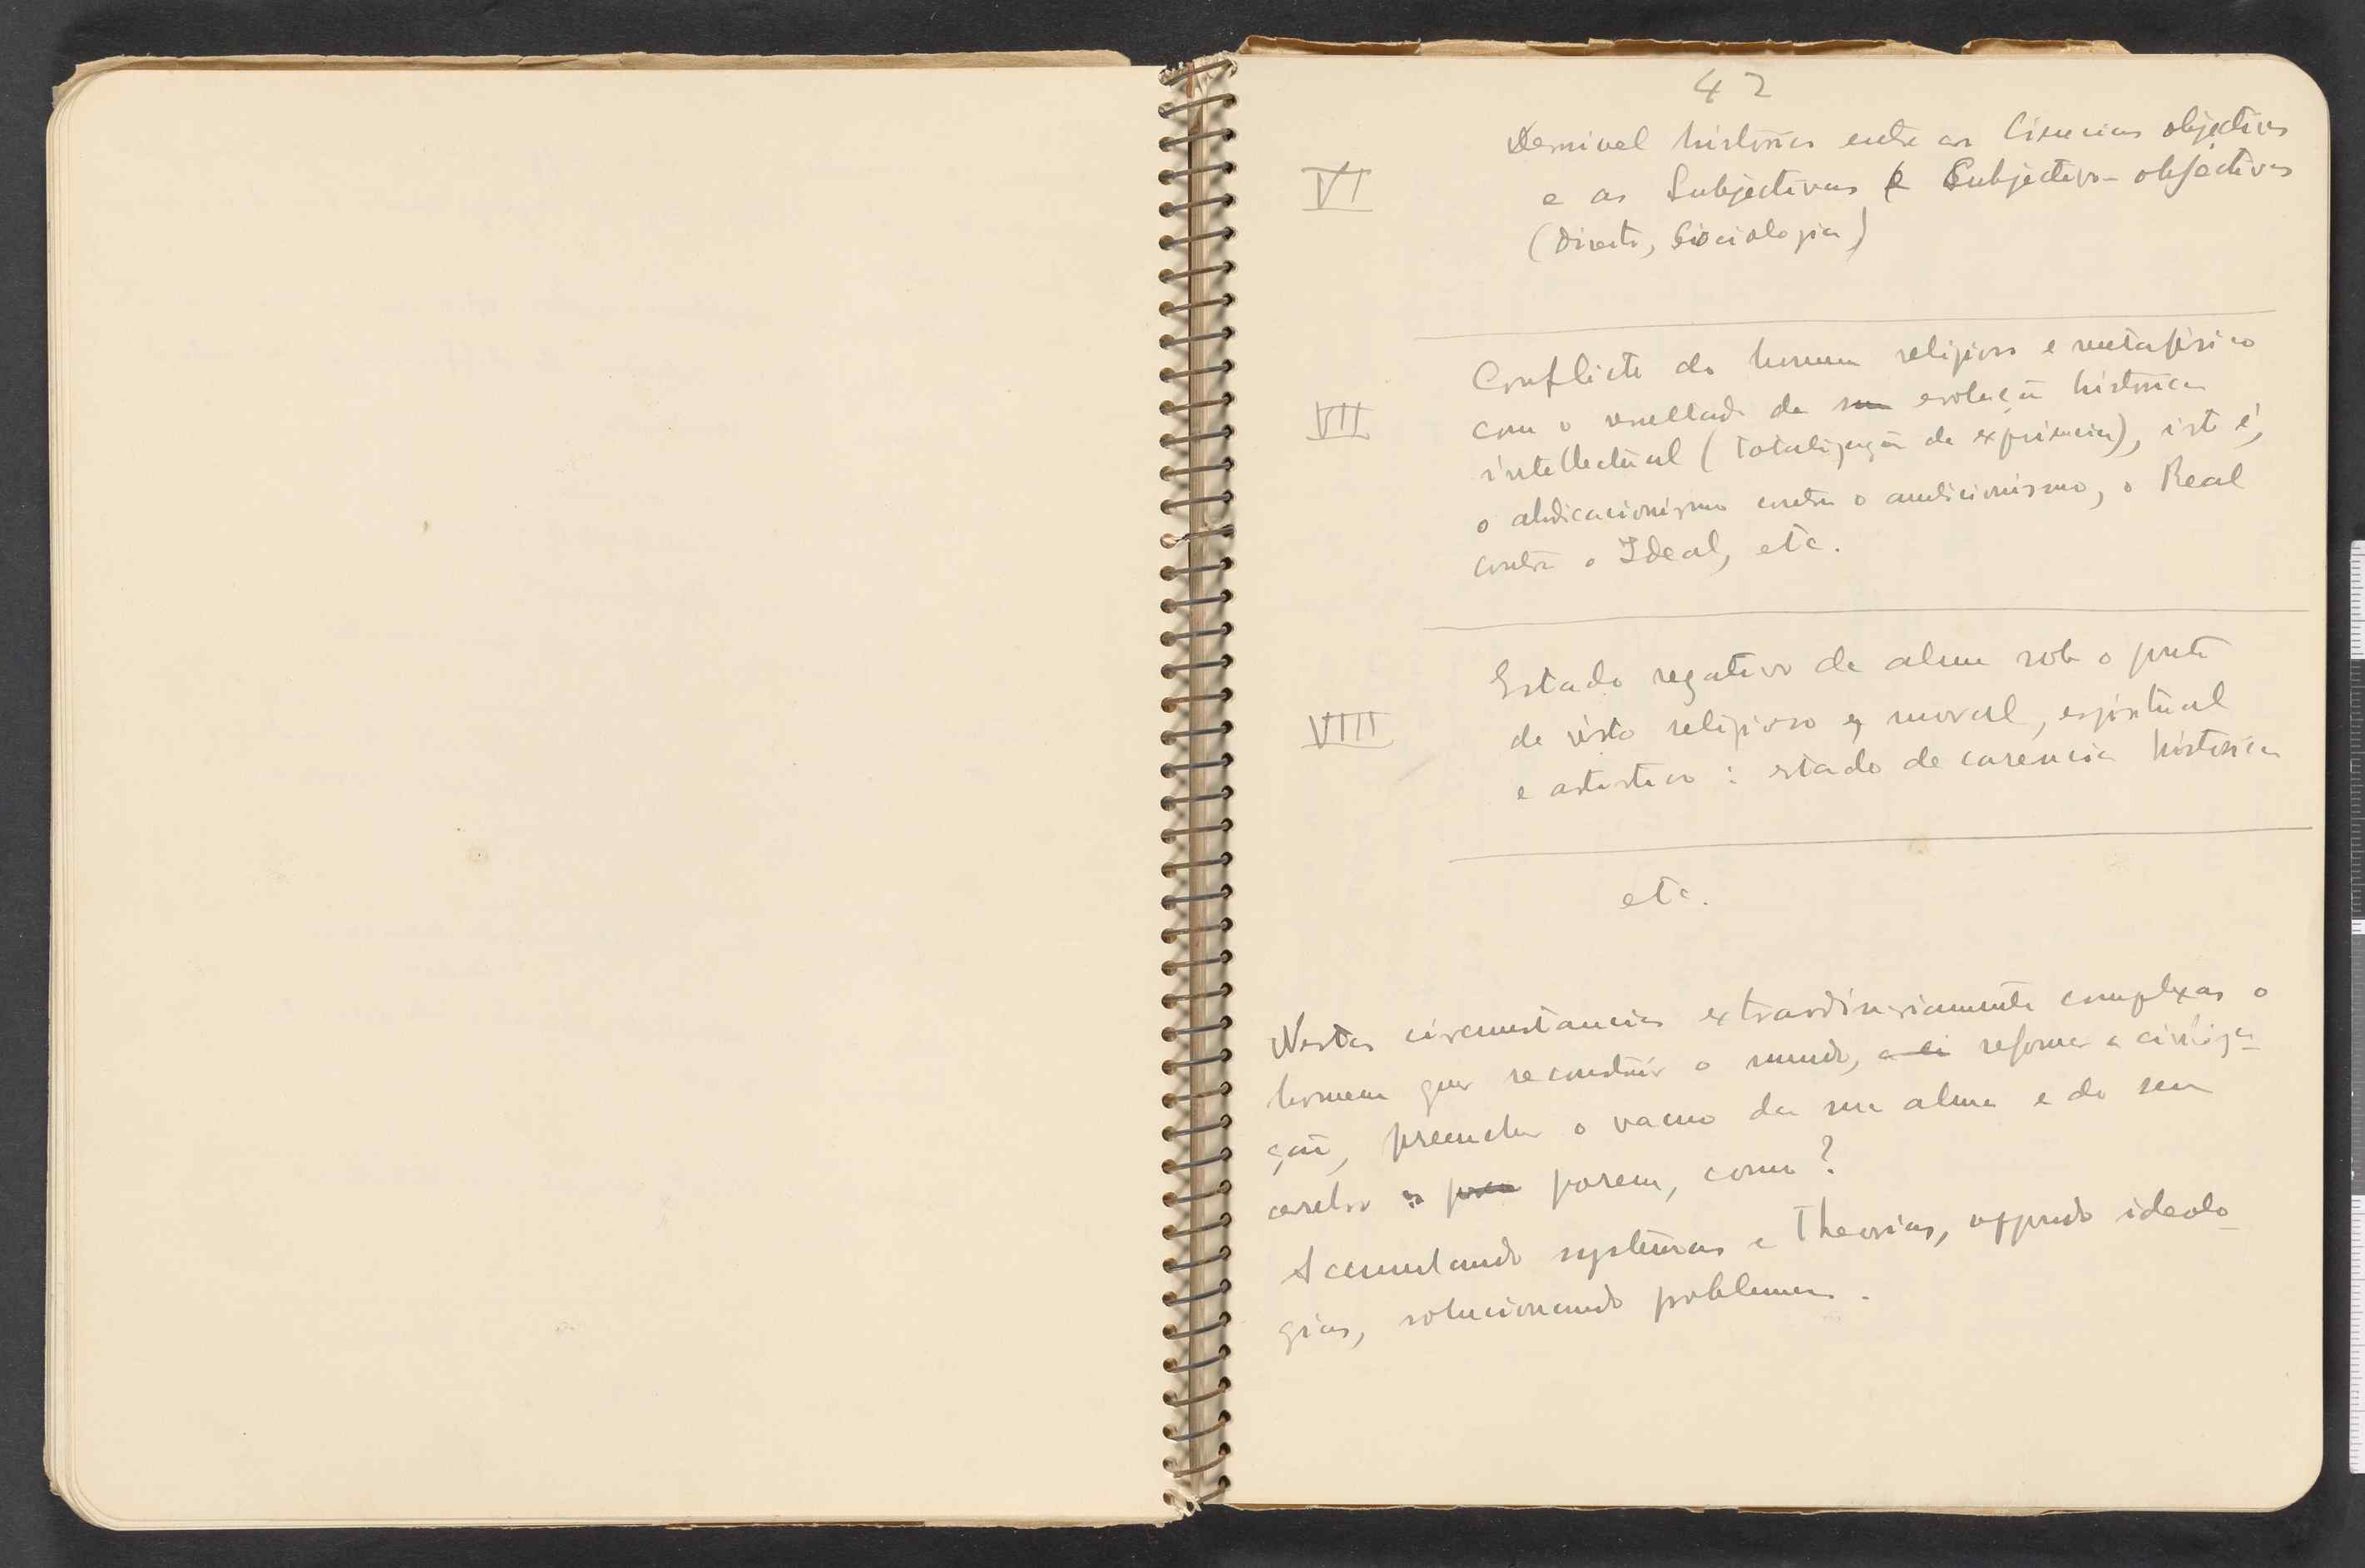 42
Desnivel historico entre as Ciencias objectivas
VI e as Subjectivas e Subjectivo-objectivas
(Direito, Sociologia)
Conflicto do homem religioso e metafisico
VII com o resultado da sua evolução historica
intellectual (totalização da experiencia), isto é,
o abdicacionismo contra o ambicionismo, o Real
contra o Ideal, etc.
Estado negativo da alma sob o ponto
VIII de vista religioso e moral, espiritual
e artistico : estado de carencia historica
etc.
Nestas circumstancias extraordinariamente complexas o
homem quer reconstruir o mundo, a ci reformar a civiliza-
ção, preencher o vacuo da sua alma e do seu
cerebro porem, como?
Accumulando systemas e Theorias, oppondo ideolo-
gias, solucionando problemas.